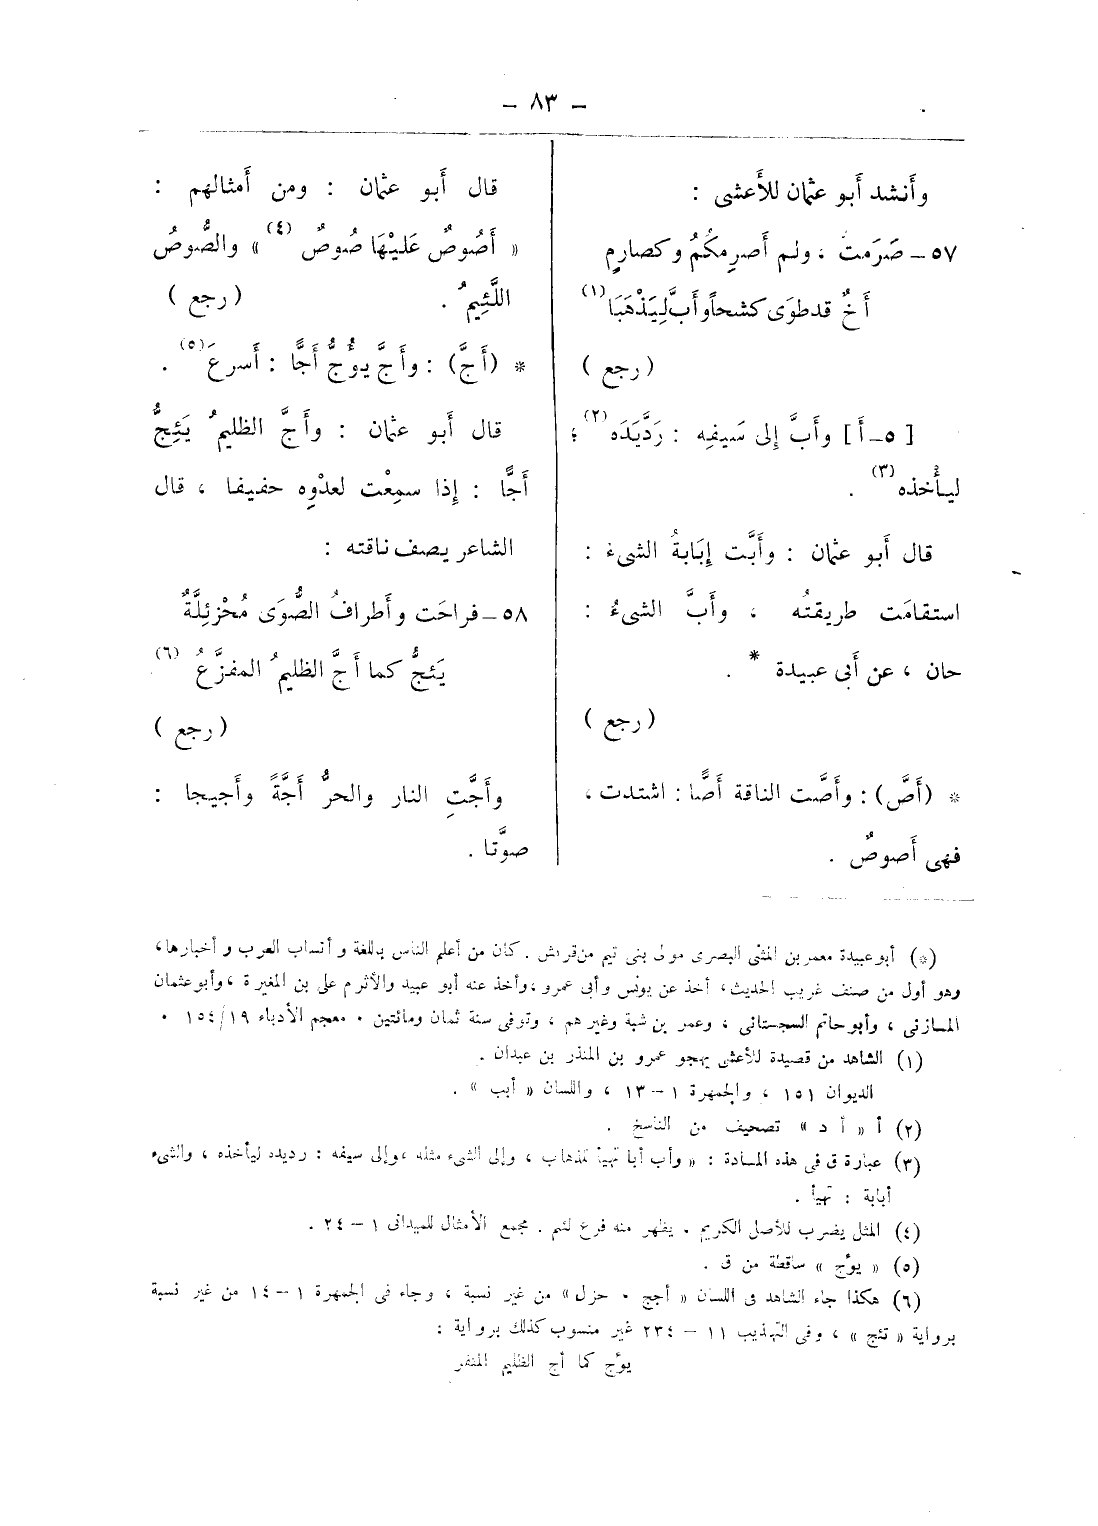 - ٨٣ -
وأنشد أبو عثمان للأَعشى :
٥٧ـ صَرَمتُ ، ولم أصرِمكُمُ وكصارمٍ
أَخٌ قدطوَى كشحاً وأَبَّ لِيَذْهَبَا (١)
( رجع )
[ ٥ـ أَ ] وأَبَّ إلى سَيفِه : رَدَّيَدَه (٢) ؛
ليأْخذه (٣) .
قال أبو عثمان : وأَبَّت إبَابةُ الشىءَ :
استقامَت طريقتُه ، وأَبَّ الشىءُ :
حان ، عن أبى عبيدة * .
( رجع )
* (أَصَّ) : وأَصَّت الناقة أَصًّا : اشتدت ،
فهى أَصوصٌ .
قال أَبو عثمان : ومن أَمثالهم :
« أَصُوصٌ عَليْهَا صُوصٌ (٤) » والصُّوصُ
اللَّئِيمُ . ( رجع )
* (أَجَّ) : وأَجَّ يؤُجُّ أَجًّا : أَسرعَ (٥) .
قال أَبو عثمان : وأَجَّ الظليمُ يَئِجُّ
أَجًّا : إذا سمِعْت لعدْوِه حفيفا ، قال
الشاعر يصف ناقته :
٥٨ـ فراحَت وأَطرافُ الصُّوَى مُحْزئِلَّةٌ
يَئجُّ كما أَجَّ الظليمُ المفزَّعُ (٦)
( رجع )
وأَجَّتِ النار والحرُّ أَجَّةً وأَجيجا :
صوَّتا .
(*) أبو عبيدة معمر بن المثنى البصرى مولى بنى تيم من قريش . كان من أعلم الناس باللغة وأنساب العرب وأخبارها،
وهو أول من صنف غريب الحديث، أخذ عن يونس وأبى عمرو ، وأخذ عنه أبو عبيد والأثرم على بن المغيرة ، وأبو عثمان
المازنى ، وأبو حاتم السجستانى ، وعمر بن شبة وغيرهم ، وتوفى سنة ثمان ومائتين . معجم الأدباء ١٩/١٥٤ .
(١) الشاهد من قصيدة للأعشى يهجو عمرو بن المنذر بن عبدان .
الديوان ١٥١ ، والجمهرة ١ – ١٣ ، واللسان « أبب » .
(٢) أ « أ د » تصحيف من الناسخ .
(٣) عبارة ق فى هذه المادة : « وأب أبا تهيأ للذهاب ، وإلى الشىء مثله ، وإلى سيفه : رديده ليأخذه ، والشىء
أبابة : تهيأ .
(٤) المثل يضرب للأصل الكريم . يظهر منه فرع لئيم . مجمع الأمثال للميدانى ١ – ٢٤ .
(٥) « يؤج » ساقطة من ق .
(٦) هكذا جاء الشاهد فى اللسان « أجج . حزل » من غير نسبة ، وجاء فى الجمهرة ١ – ١٤ من غير نسبة
برواية « تئج » ، وفى التهذيب ١١ – ٢٣٤ غير منسوب كذلك برواية :
يؤج كما أج الظليم المنفر